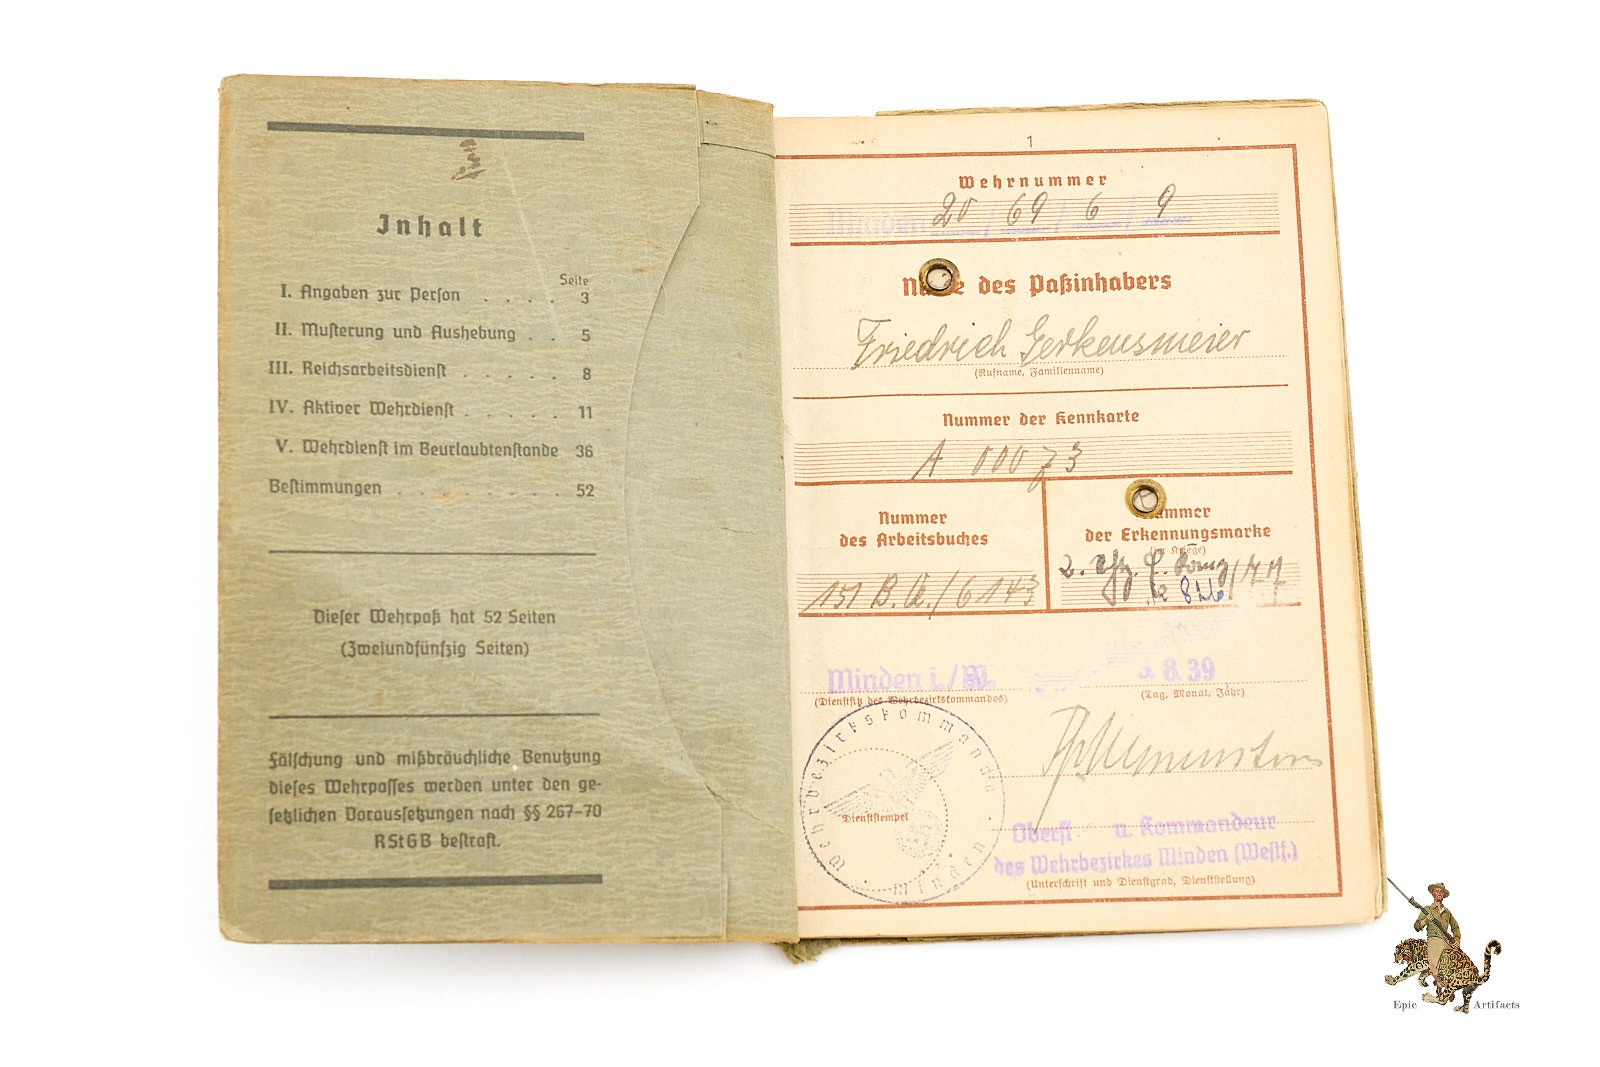 Inhalt
Seite
I. Angaben zur Person . . . . 3
II. Musterung und Aushebung . . 5
III. Reichsarbeitsdienst . . . . . 8
IV. Aktiver Wehrdienst . . . . . 11
V. Wehrdienst im Beurlaubtenstande 36
Bestimmungen . . . . . . . . 52
Dieser Wehrpaß hat 52 Seiten
(Zweiundfünfzig Seiten)
Fälschung und mißbräuchliche Benutzung
dieses Wehrpasses werden unter den ge-
setzlichen Voraussetzungen nach §§ 267-70
RStGB bestraft.
1
Wehrnummer
Minden 20 / 69 / 6 / 9
Name des Paßinhabers
Friedrich Gerkensmeier
(Rufname, Familienname)
Nummer der Kennkarte
A 00073
Nummer
des Arbeitsbuches
151 B.A./6143
Nummer
der Erkennungsmarke
(im Kriege)
2.
Minden i./W.
8.39
(Dienstsitz des Wehrbezirkskommandos)
(Tag, Monat, Jahr)
Wehrbezirkskommando
Minden
Dienststempel
Oberst u. Kommandeur
des Wehrbezirkes Minden (Westf.)
(Unterschrift und Dienstgrad, Dienststellung)
Epic Artifacts